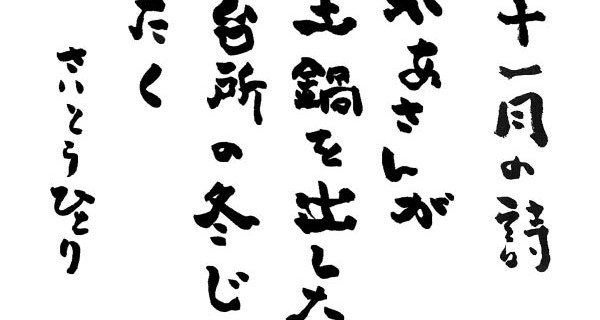 十一月の詩
かあさんが
土鍋を出した
台所の冬じ
たく
さいとうひとり